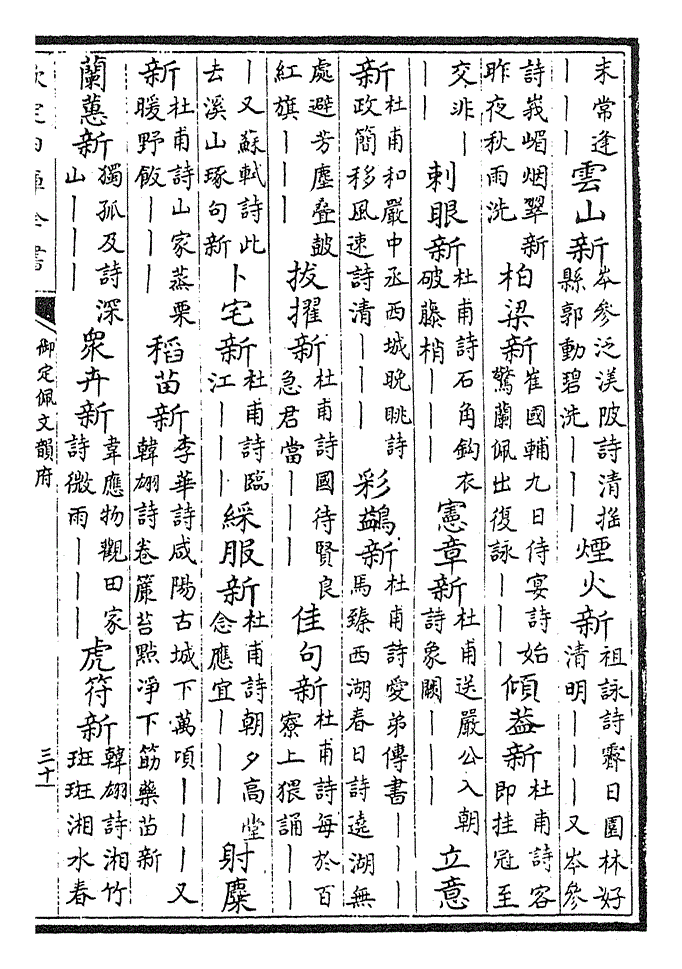 末常逢｜｜｜雲山新岑參泛渼陂詩清揺縣郭動碧洗｜｜｜煙火新祖詠詩霽日園林好清明｜｜｜又岑參
詩峩嵋烟翠新昨夜秋雨洗柏梁新崔國輔九日侍宴詩始驚蘭佩出復詠｜｜｜傾葢新杜甫詩客即挂冠至
交非｜｜｜刺眼新杜甫詩石角鈎衣破藤梢｜｜｜憲章新杜甫送嚴公入朝詩象闕｜｜｜立意
新杜甫和嚴中丞西城晚眺詩政簡移風速詩清｜｜｜彩鷁新杜甫詩愛弟傳書｜｜｜馬臻西湖春日詩遶湖無
處避芳塵叠鼓紅旗｜｜｜拔擢新杜甫詩國待賢良急君當｜｜｜佳句新杜甫詩每於百寮上猥誦｜｜
｜又蘇軾詩此去溪山琢句新卜宅新杜甫詩臨江｜｜｜綵服新杜甫詩朝夕高堂念應宜｜｜｜射麋
新杜甫詩山家蒸栗暖野飯｜｜｜稻苗新李華詩咸陽古城下萬頃｜｜｜又韓翃詩卷簾苔點凈下筯藥苗新
蘭蕙新獨孤及詩深山｜｜｜衆卉新韋應物觀田家詩微雨｜｜｜虎符新韓翃詩湘竹斑斑湘水春
欽定四庫全書
御定佩文韻府
三十一